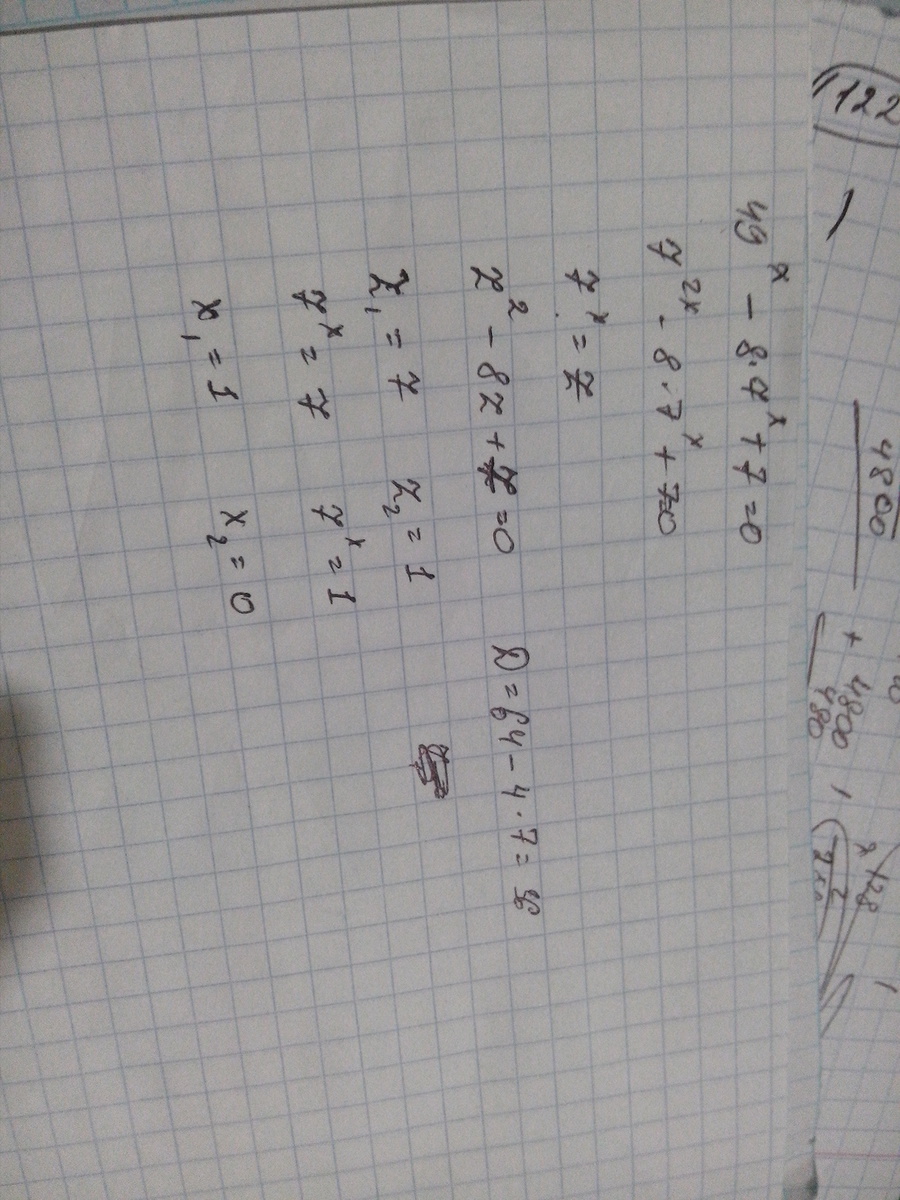 49ˣ - 8·7ˣ + 7 = 0
7²ˣ - 8·7ˣ + 7=0
7ˣ = z
z² - 8z + 7 = 0 D = 64 - 4·7 = 36
z₁ = 7 z₂ = 1
7ˣ = 7 7ˣ = 1
x₁ = 1 x₂ = 0
122
4800
+ 4800
480